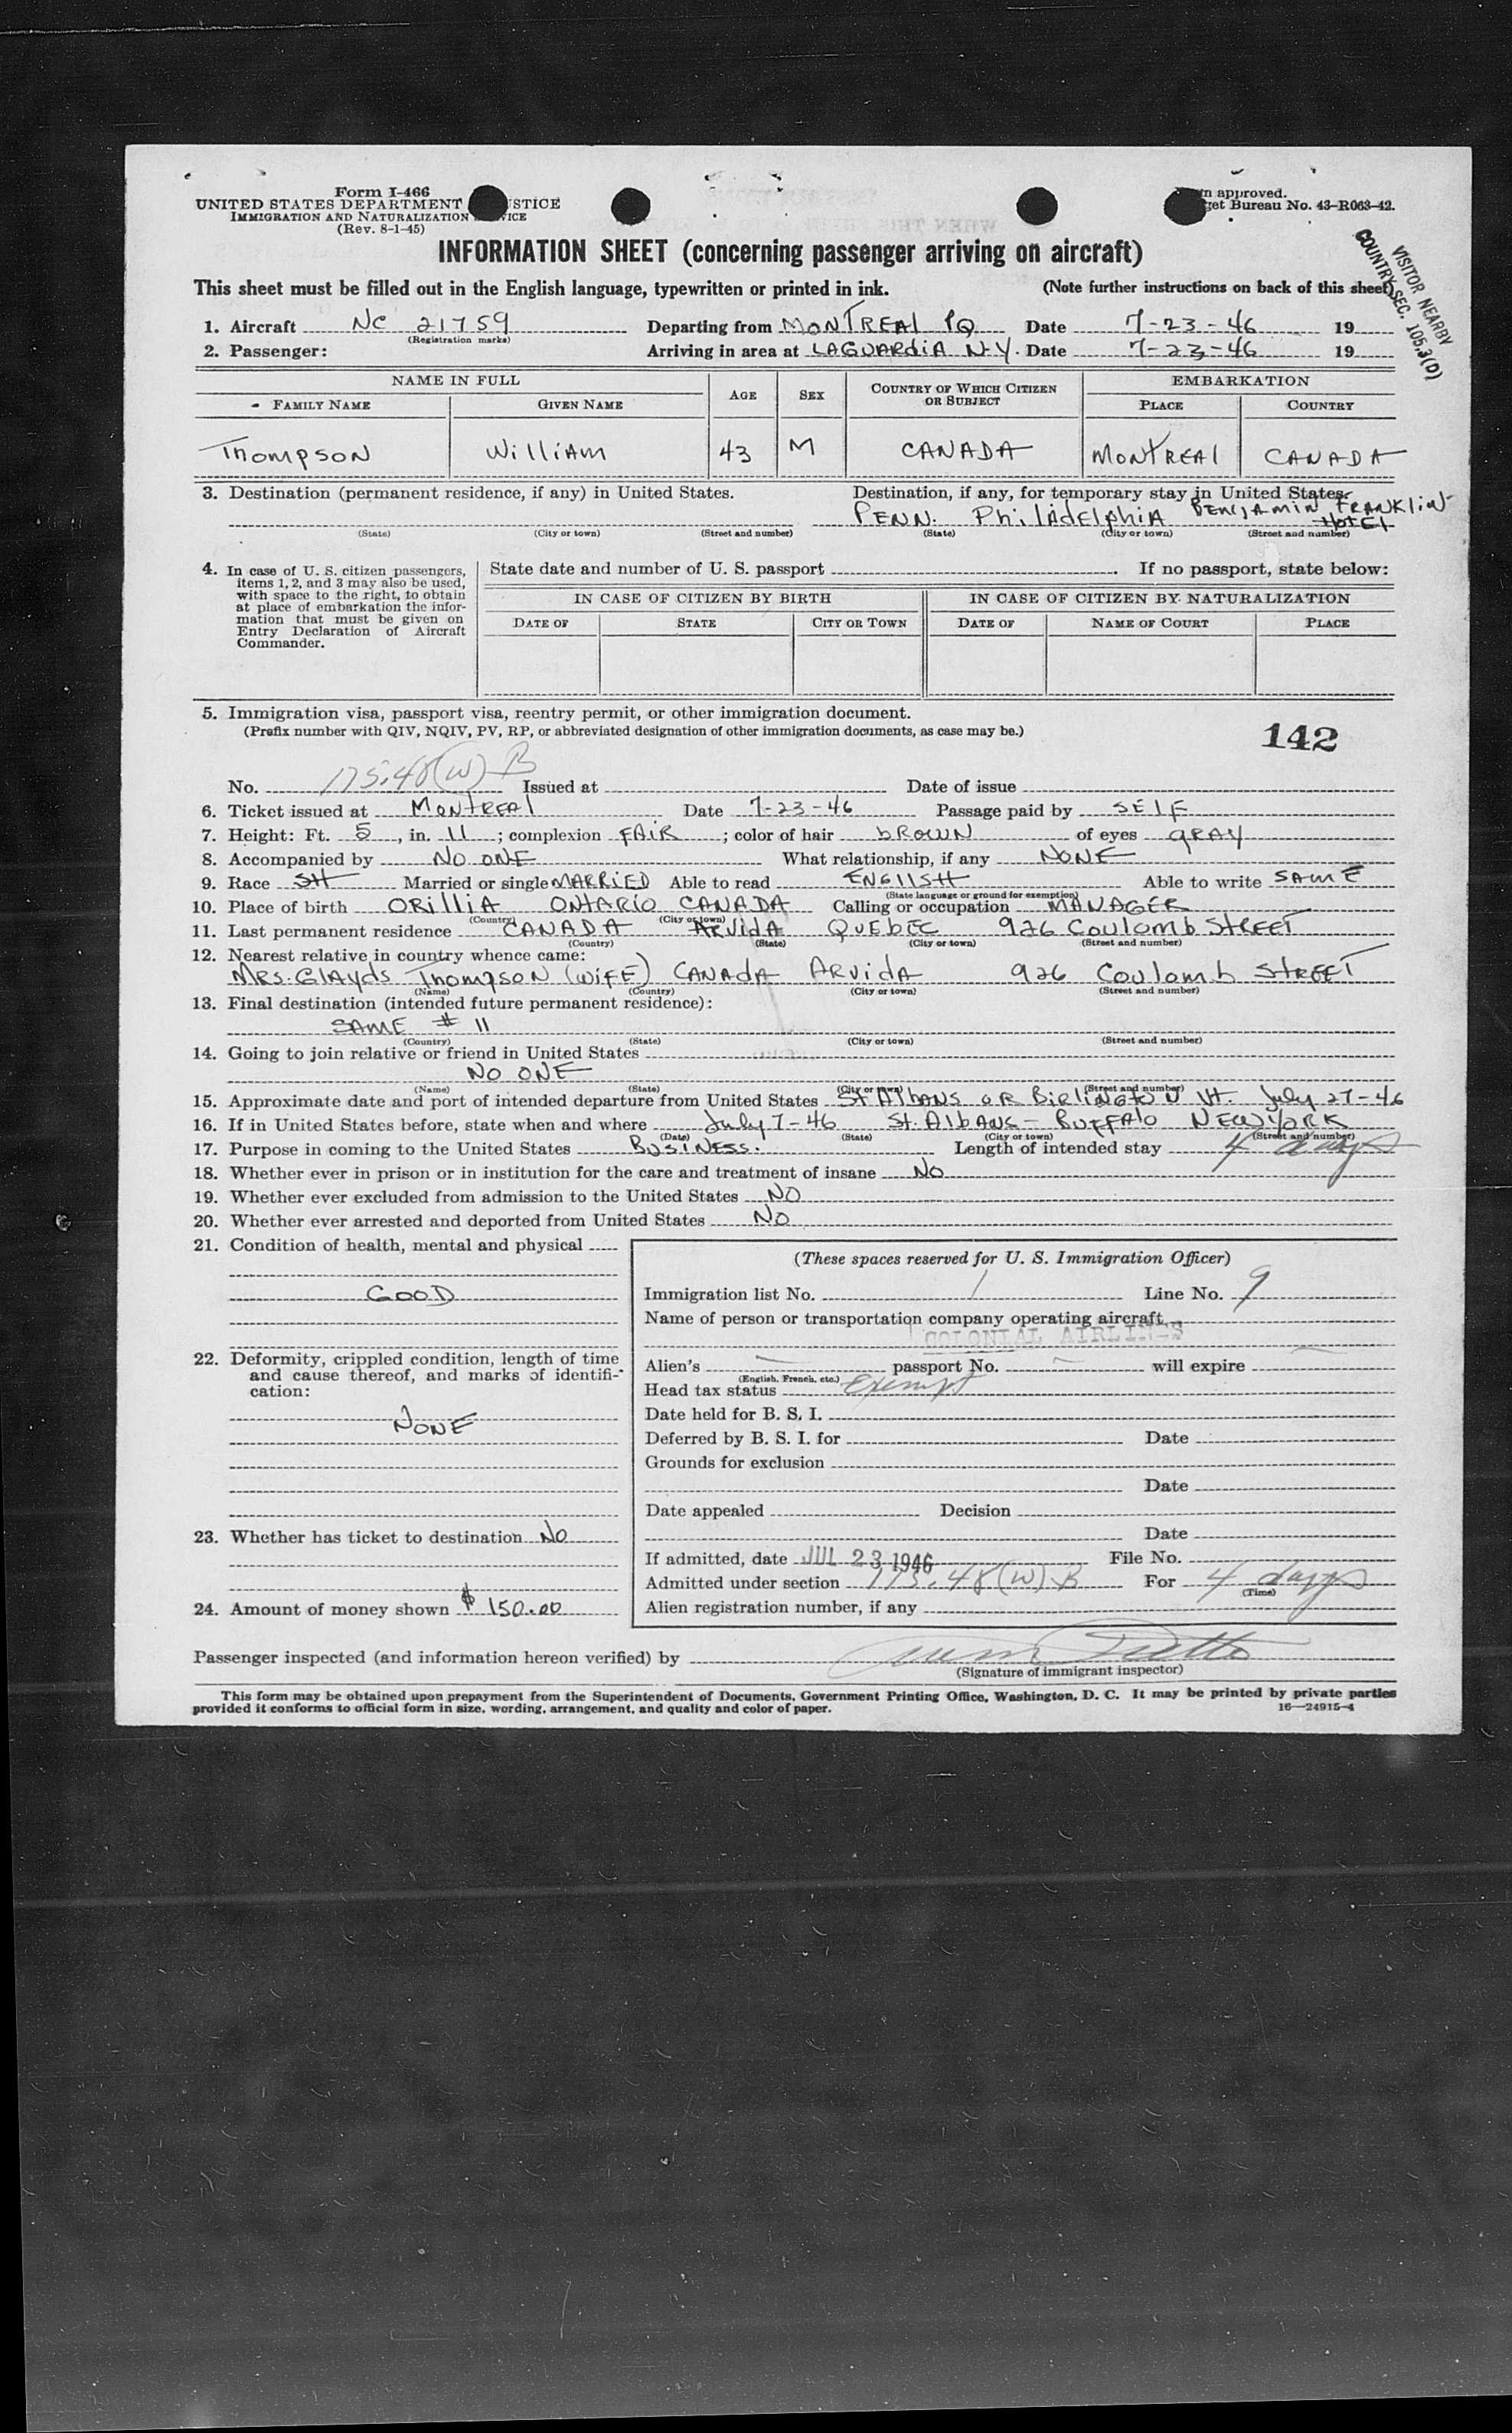 Form I-466
UNITED STATES DEPARTMENT STICE
IMMIGRATION AND NATURALIZATION ICE
(Rev. 8-1-45)
n approved.
get Bureau No. 43-R063-42.
INFORMATION SHEET (concerning passenger arriving on aircraft)
VISITOR NEARBY
COUNTRY SEC. 105.3(D)
This sheet must be filled out in the English language, typewritten or printed in ink. (Note further instructions on back of this sheet)
1. Aircraft NC 21759 Departing from MONTREAL PQ Date 7-23-46 19
(Registration marks)
2. Passenger: Arriving in area at LAGUARDIA N.Y. Date 7-23-46 19
NAME IN FULL AGE SEX COUNTRY OF WHICH CITIZEN OR SUBJECT EMBARKATION
FAMILY NAME GIVEN NAME PLACE COUNTRY
THOMPSON WILLIAM 43 M CANADA MONTREAL CANADA
3. Destination (permanent residence, if any) in United States. Destination, if any, for temporary stay in United States.
PENN. PHILADELPHIA BENJAMIN FRANKLIN HOTEL
(State) (City or town) (Street and number) (State) (City or town) (Street and number)
4. In case of U. S. citizen passengers, items 1, 2, and 3 may also be used, with space to the right, to obtain at place of embarkation the information that must be given on Entry Declaration of Aircraft Commander.
State date and number of U. S. passport . If no passport, state below:
IN CASE OF CITIZEN BY BIRTH IN CASE OF CITIZEN BY NATURALIZATION
DATE OF STATE CITY OR TOWN DATE OF NAME OF COURT PLACE
5. Immigration visa, passport visa, reentry permit, or other immigration document.
(Prefix number with QIV, NQIV, PV, RP, or abbreviated designation of other immigration documents, as case may be.)
142
No. 175.48(W) B Issued at Date of issue
6. Ticket issued at MONTREAL Date 7-23-46 Passage paid by SELF
7. Height: Ft. 5, in. 11; complexion FAIR; color of hair BROWN of eyes GRAY
8. Accompanied by NO ONE What relationship, if any NONE
9. Race SH Married or single MARRIED Able to read ENGLISH Able to write SAME
(State language or ground for exemption)
10. Place of birth ORILLIA ONTARIO CANADA Calling or occupation MANAGER
(Country) (City or town)
11. Last permanent residence CANADA ARVIDA QUEBEC 926 COULOMB STREET
(Country) (State) (City or town) (Street and number)
12. Nearest relative in country whence came:
MRS. GLAYDS THOMPSON (WIFE) CANADA ARVIDA 926 COULOMB STREET
(Name) (Country) (City or town) (Street and number)
13. Final destination (intended future permanent residence):
SAME # 11
(Country) (State) (City or town) (Street and number)
14. Going to join relative or friend in United States
NO ONE
(Name) (State) (City or town) (Street and number)
15. Approximate date and port of intended departure from United States St Albans OR Birlington Vt. July 27-46
16. If in United States before, state when and where July 7-46 St. Albans - BUFFALO NEW YORK
(Date) (State) (City or town) (Street and number)
17. Purpose in coming to the United States BUSINESS. Length of intended stay 4 days
18. Whether ever in prison or in institution for the care and treatment of insane NO
19. Whether ever excluded from admission to the United States NO
20. Whether ever arrested and deported from United States NO
21. Condition of health, mental and physical
GOOD
22. Deformity, crippled condition, length of time and cause thereof, and marks of identification:
NONE
23. Whether has ticket to destination NO
24. Amount of money shown $ 150.00
(These spaces reserved for U. S. Immigration Officer)
Immigration list No. 1 Line No. 9
Name of person or transportation company operating aircraft
COLONIAL AIRLINES
Alien's — passport No. — will expire —
(English, French, etc.)
Head tax status Exempt
Date held for B. S. I.
Deferred by B. S. I. for Date
Grounds for exclusion
Date
Date appealed Decision
Date
If admitted, date JUL 23 1946 File No.
Admitted under section 175.48(W) B For 4 days
(Time)
Alien registration number, if any
Passenger inspected (and information hereon verified) by
(Signature of immigrant inspector)
This form may be obtained upon prepayment from the Superintendent of Documents, Government Printing Office, Washington, D. C. It may be printed by private parties
provided it conforms to official form in size, wording, arrangement, and quality and color of paper. 16—24915-4